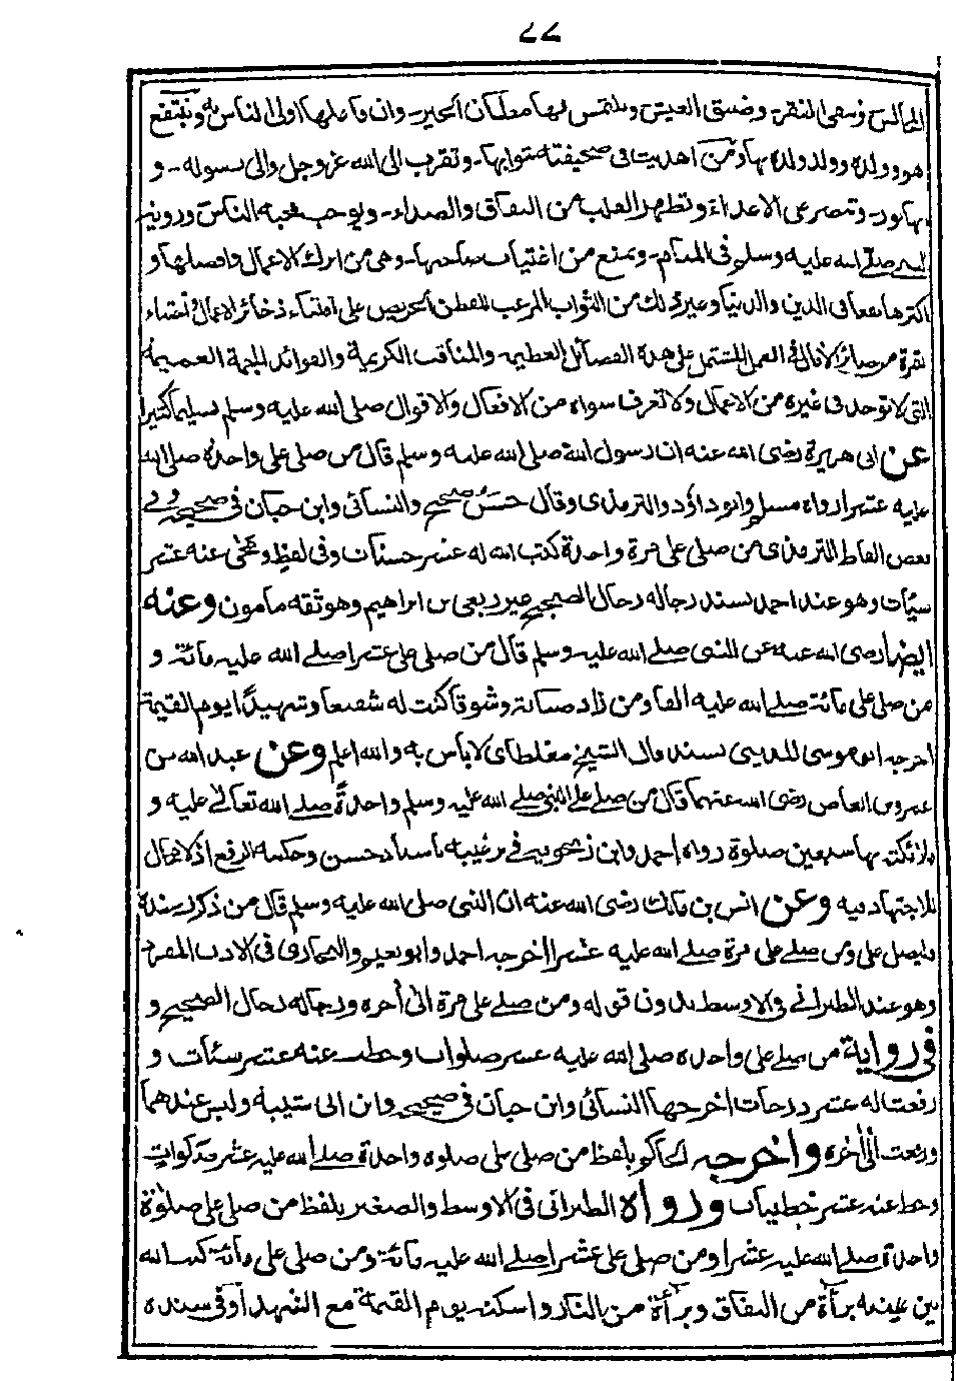 ٧٧
المجالس وتنفى الفقر وضيق العيش ويلتمس بها مظان الخير وان فاعلها اولى الناس به وينتفع
هو وولده وولد ولده بها ومن اهديت فى صحيفته بثوابها وتقرب الى الله عز وجل والى رسوله و
بها نور وتنصر على الاعداء وتطهر القلب من النفاق والصداء ويوجب محبة الناس ورؤية
النبى صلى الله عليه وسلم فى المنام وتمنع من اغتياب صاحبها وهى من ابرك الاعمال وافضلها و
اكثرها نفعا فى الدين والدنيا وغير ذلك من الثواب المرغب للفطن الحريص على اقتناء ذخائر الاعمال
العمل المشتمل على هذه الفضائل العظيمة والمناقب الكريمة والفوائد الجمة العميمة
التى لا توجد فى غيره من الاعمال ولا تعرف سواه من الافعال والاقوال صلى الله عليه وسلم تسليما كثيرا
عن ابى هريرة رضى الله عنه ان رسول الله صلى الله عليه وسلم قال من صلى على واحدة صلى الله
عليه عشرا رواه مسلم وابو داؤد والترمذى وقال حسن صحيح والنسائى وابن حبان فى صحيحه وفى
بعض الفاظ الترمذى من صلى على مرة واحدة كتب الله له عشر حسنات وفى لفظ ومحى عنه عشر
سيّات وهو عند احمد بسند رجاله رجال الصحيح غير ربعى بن ابراهيم وهو ثقة مأمون وعنه
ايضا رضى الله عنه عن النبى صلى الله عليه وسلم قال من صلى على عشرا صلى الله عليه مائة و
من صلى على مائة صلى الله عليه الفا ومن زاد صبابة وشوقا كنت له شفيعا وشهيدًا يوم القيمة
اخرجه ابو موسى المدينى بسند قال الشيخ مغلطاى لا باس به والله اعلم وعن عبد الله بن
عمرو بن العاص رضى الله عنهما قال من صلى على النبى صلى الله عليه وسلم واحدةً صلى الله تعالى عليه و
ملائكته بها سبعين صلوة رواه احمد وابن زنجويه فى ترغيبه باسناد حسن وحكمه الرفع اذ لا مجال
للاجتهاد فيه وعن انس بن مالك رضى الله عنه ان النبى صلى الله عليه وسلم قال من ذكرت عنده
فليصل على ومن صلى على مرة صلى الله عليه عشرا اخرجه احمد وابو نعيم والبخارى فى الادب المفرد
وهو عند الطبرانى فى الاوسط بدون قوله ومن صلى على مرة الى أخره ورجاله رجال الصحيح و
فى رواية من صلى على واحدة صلى الله عليه عشر صلوات وحطت عنه عشر سيئات و
رفعت له عشر درجات اخرجها النسائى وابن حبان فى صحيحه وابن ابى شيبة وليس عندهما
ورفعت الى أخره واخرجه الحاكم بلفظ من صلى على صلوة واحدة صلى الله عليه عشر صلوات
وحط عنه عشر خطيئات ورواه الطبرانى فى الاوسط والصغير بلفظ من صلى على صلوٰة
واحدة صلى الله عليه عشرا ومن صلى على عشرا صلى الله عليه مائة ومن صلى على مائة كتب الله
بين عينيه برأة من النفاق وبرأة من النار واسكنه يوم القيمة مع الشهدآء وفى سنده